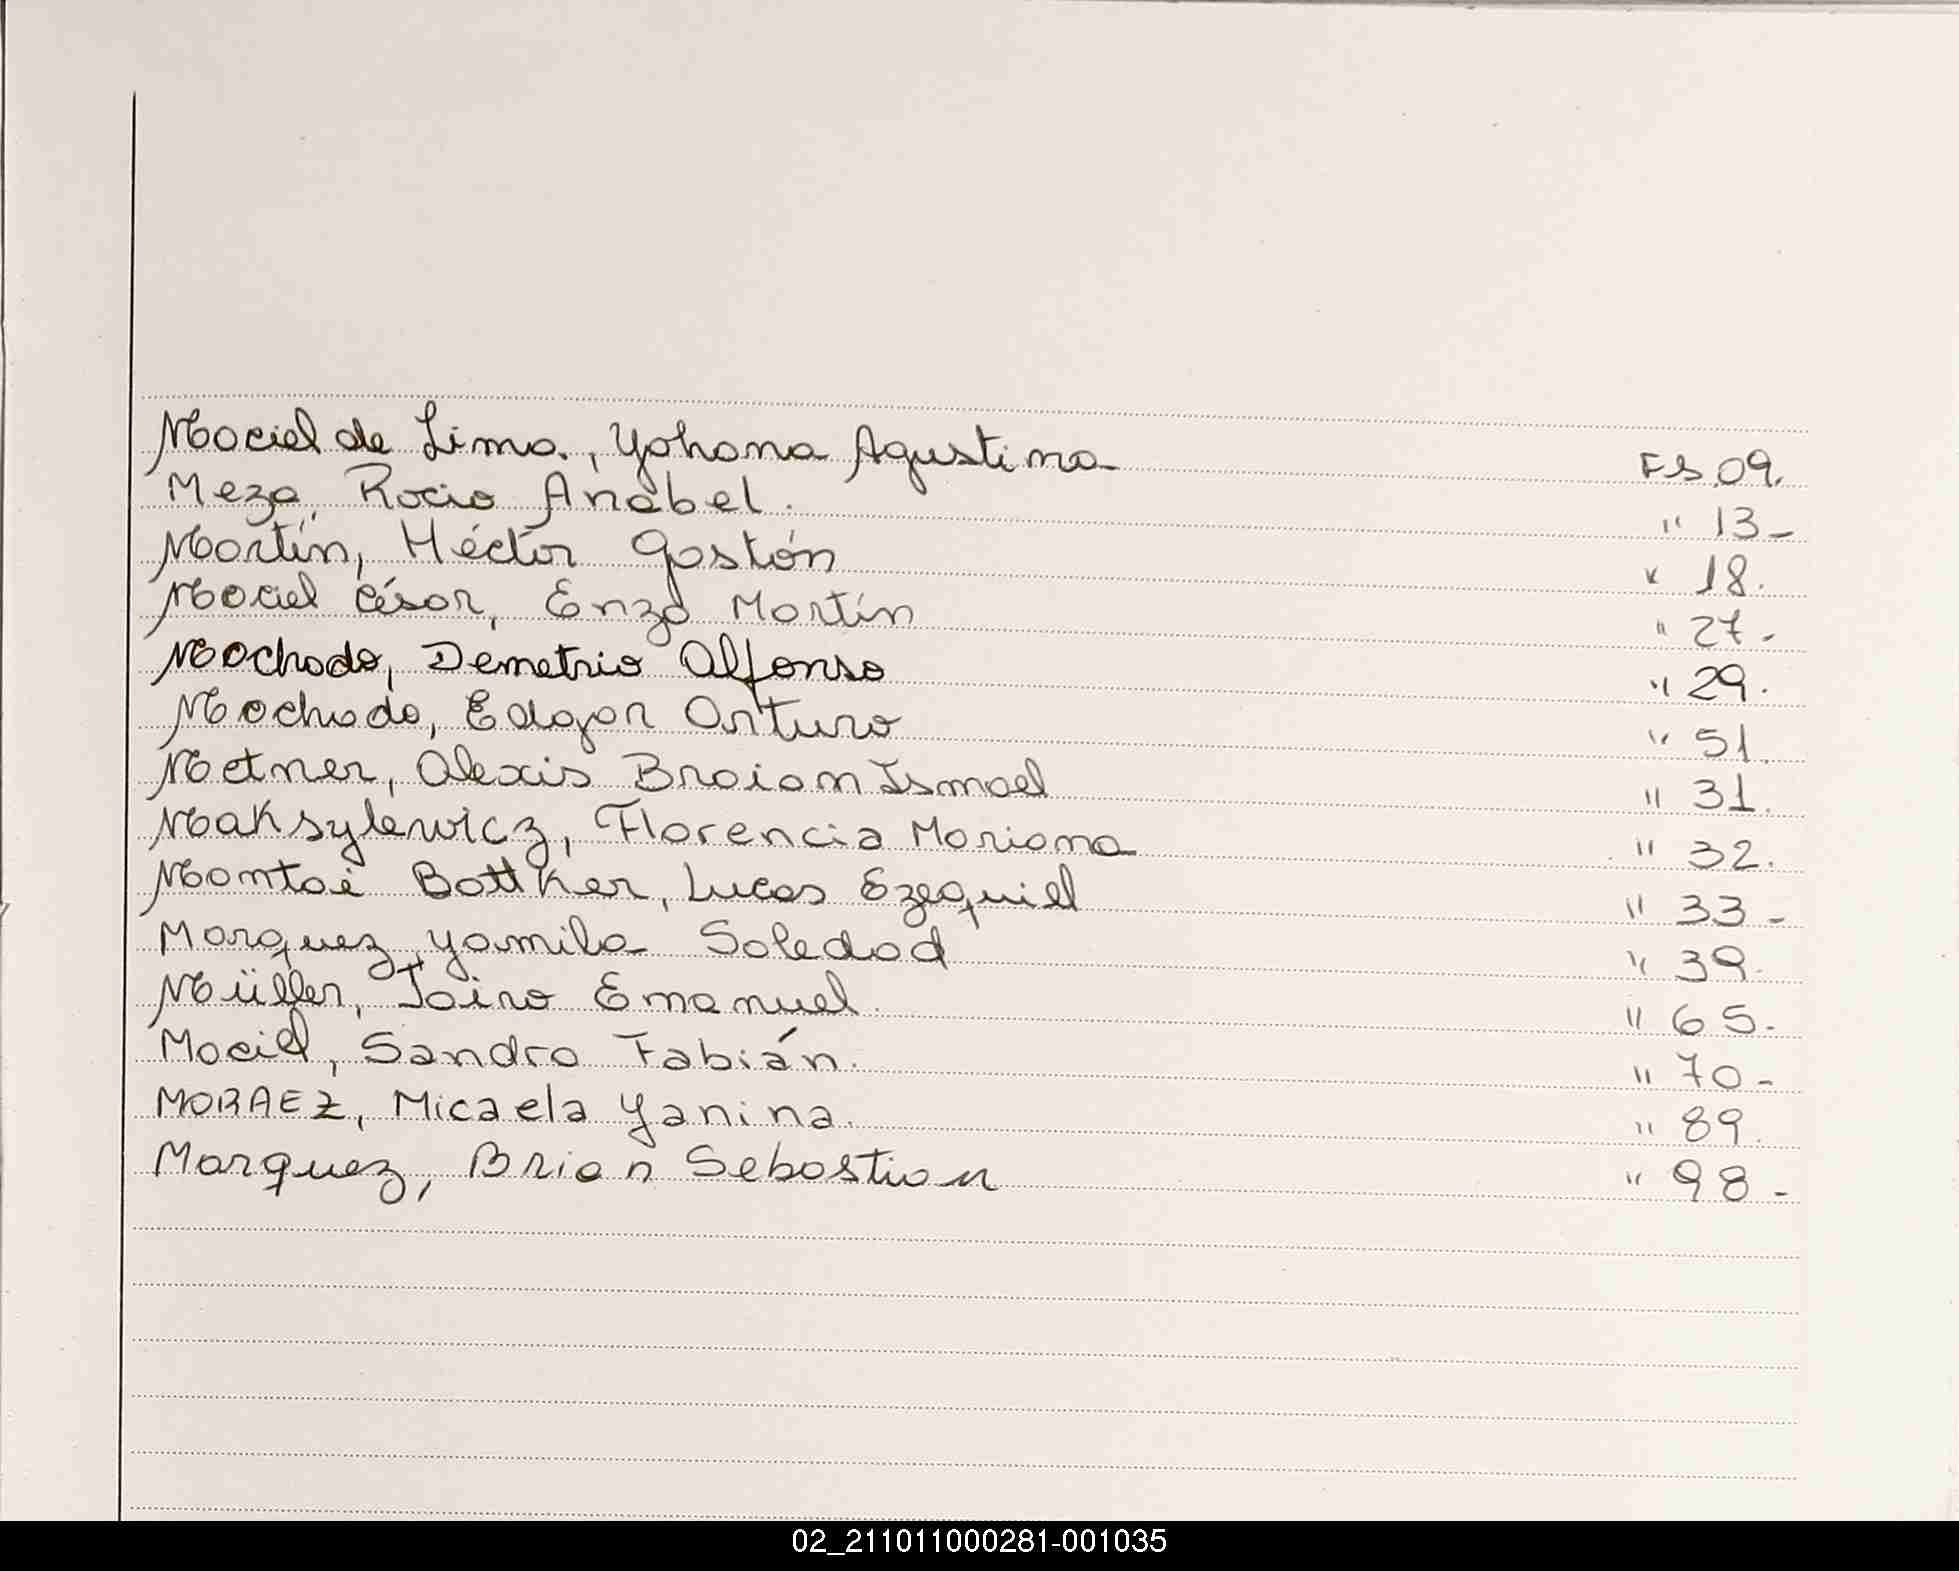 Maciel de Lima, Yohana Agustina Fs 09.
Meza, Rocio Anabel. " 13-
Martín, Héctor Gastón " 18.
Maciel César, Enzo Martín " 27-
Machado, Demetrio Alfonso " 29.
Machado, Edgar Arturo " 51.
Metner, Alexis Braian Ismael " 31.
Maksylewicz, Florencia Mariana " 32.
Mantai Bottker, Lucas Ezequiel " 33-
Marquez, Yamila Soledad " 39.
Müller, Jairo Emanuel. " 65-
Maciel, Sandro Fabián. " 70-
MORAEZ, Micaela Yanina. " 89.
Marquez, Brian Sebastian " 98-
02_211011000281-001035